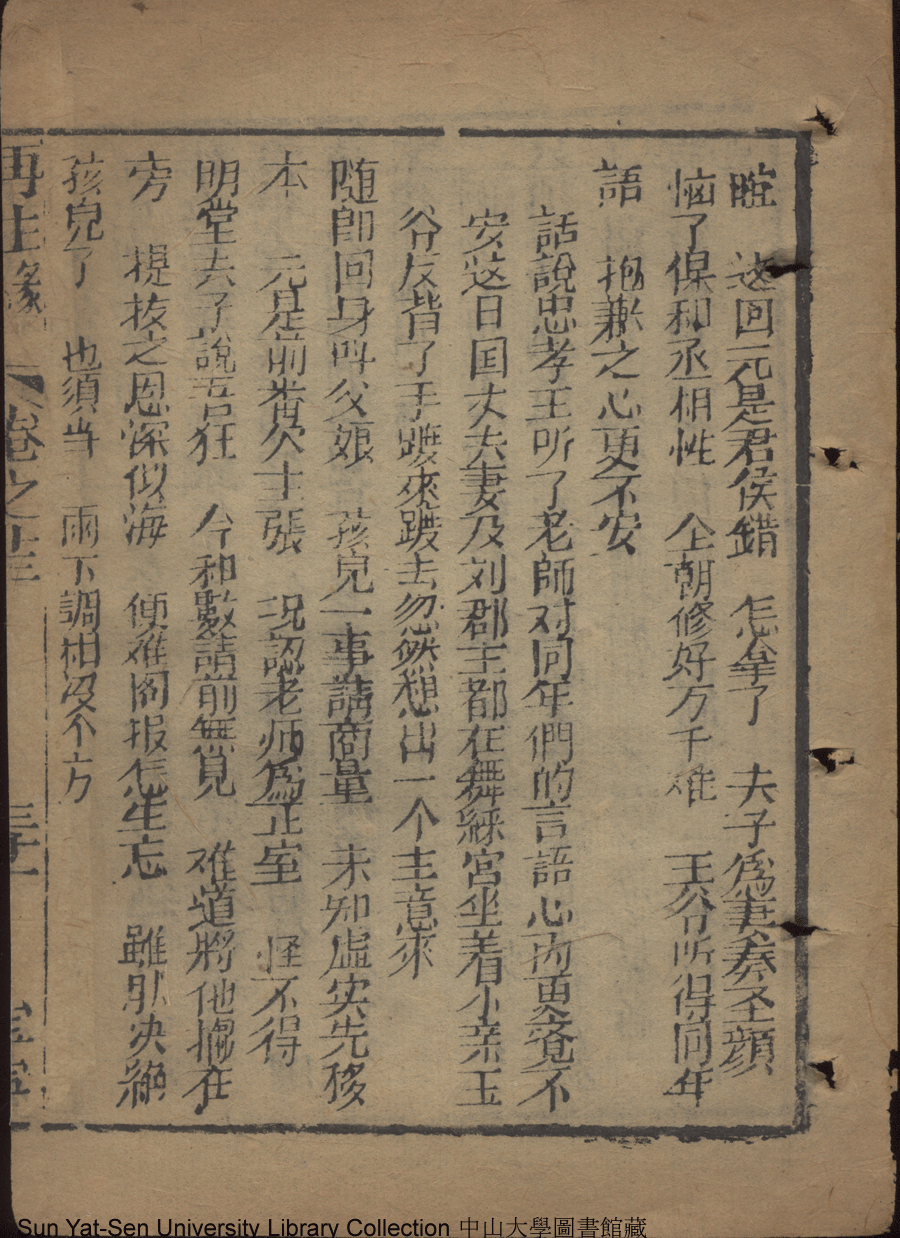 睆 这回元是君侯錯 怎拿了 夫子為妻奏圣顔
恼了保和丞相性 仝朝修好万千难 王爷所得同年
語 抱兼之心更不安
話說忠孝王听了老師对同年們的言語心内更覚不
安这日国丈夫妻及刘郡主都在舞綵宮坐着小亲王
爷反背了手踱來踱去忽然想出一个主意來
随即回身叫父娘 孩兒一事請商量 未知虚实先移
本 元是前畨欠主張 况認老师為正室 怪不得
明堂夫子說吾狂 今和數請前無覓 难道將他撇在
旁 提拔之恩深似海 便难图报怎生忘 雖肰决絕
孩兒了 也須当 雨下調和没不方
再生緣 卷之 三十一